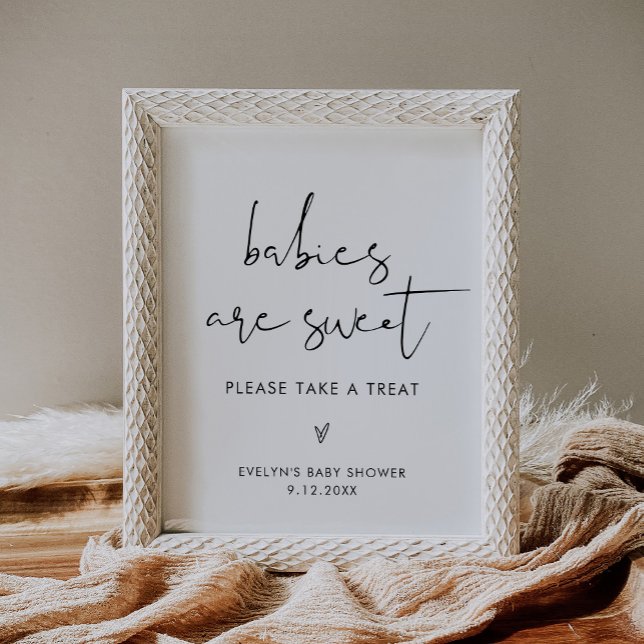 babies
are sweet
PLEASE TAKE A TREAT
EVELYN'S BABY SHOWER
9.12.20XX